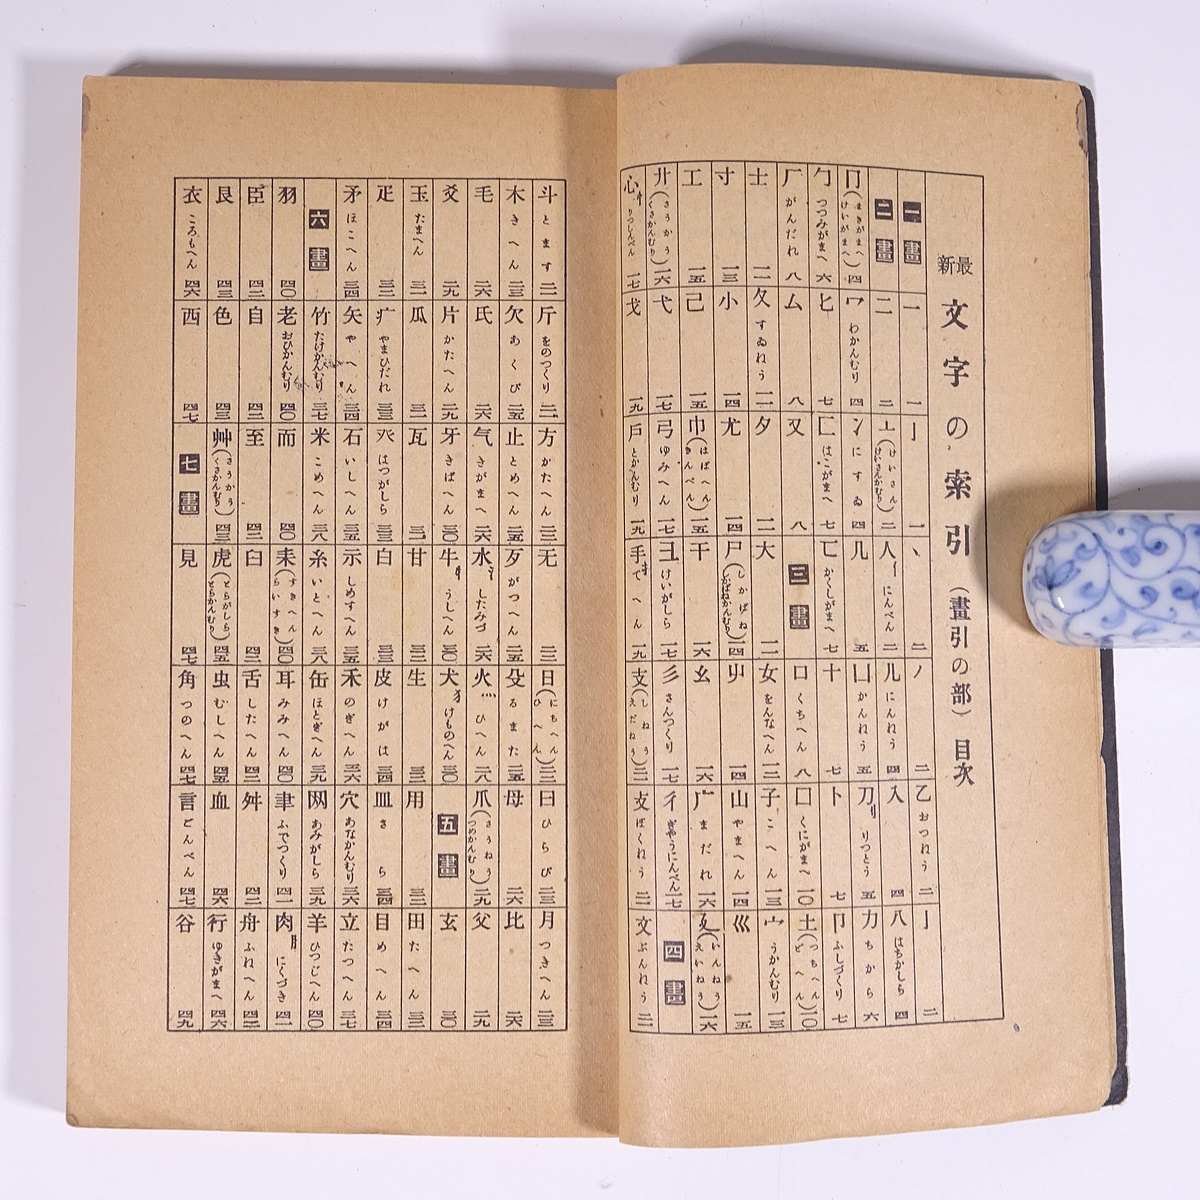 最新 文字の索引(畫引の部)目次
一畫
一 一
亅 一
丶 二
丿 二
乙 おつねう 二
亅 二
二畫
二 二
亠(けいさん けいさんかむり) 二
人 亻にんべん 二
儿 にんねう 四
入 四
八 はちかしら 四
冂(まきがまへ けいがまへ) 四
冖 わかんむり 四
冫 にすゐ 四
几 五
凵 かんねう 五
刀 刂 りつとう 五
力 ちから 六
勹 つつみがまへ 六
匕 七
匚 はこがまへ 七
匸 かくしがまへ 七
十 七
卜 七
卩 ふしづくり 七
厂 がんだれ 八
厶 八
又 八
三畫
口 くちへん 八
囗 くにがまへ 一〇
土(つちへん どへん) 一〇
士 一二
夂 すゐねう 一二
夕 一二
大 一二
女 をんなへん 一二
子 こへん 一三
宀 うかんむり 一三
寸 一三
小 一四
尢 一四
尸(しかばね かばねかんむり) 一四
屮 一四
山 やまへん 一四
巛 一五
工 一五
己 一五
巾(はばへん きんべん) 一五
干 一六
幺 一六
广 まだれ 一六
廴(いんねう えいねう) 一六
廾(さうかう くさかんむり) 一六
弋 一七
弓 ゆみへん 一七
彐 けいがしら 一七
彡 さんつくり 一七
彳 ぎやうにんべん 一七
四畫
心 忄 りつしんべん 一七
戈 一九
戶 とかんむり 一九
手 扌 てへん 一九
支(しねう えだねう) 二一
攴 ぼくねう 二一
文 ぶんねう 二一
斗 とます 二一
斤 をのつくり 二一
方 かたへん 二二
无 二二
日(にちへん ひへん) 二二
曰 ひらび 二三
月 つきへん 二三
木 きへん 二三
欠 あくび 二五
止 とめへん 二五
歹 がつへん 二五
殳 るまた 二五
母 二六
比 二六
毛 二六
氏 二六
气 きがまへ 二六
水 氵 したみづ 二六
火 灬 ひへん 二八
爪(さうねう つめかんむり) 二九
父 二九
爻 二九
片 かたへん 二九
牙 きばへん 三〇
牛 牜 うしへん 三〇
犬 犭 けものへん 三〇
五畫
玄 三〇
玉 たまへん 三一
瓜 三一
瓦 三二
甘 三二
生 三二
用 三二
田 たへん 三二
疋 三二
疒 やまひだれ 三三
癶 はつがしら 三三
白 三三
皮 けがは 三四
皿 さら 三四
目 めへん 三四
矛 ほこへん 三四
矢 やへん 三四
石 いしへん 三五
示 しめすへん 三五
禾 のぎへん 三六
穴 あなかんむり 三六
立 たつへん 三七
六畫
竹 たけかんむり 三七
米 こめへん 三八
糸 いとへん 三八
缶 ほとぎへん 三九
网 あみがしら 三九
羊 ひつじへん 四〇
羽 四〇
老 おひかんむり 四〇
而 四〇
耒(すきへん らいすき) 四〇
耳 みみへん 四〇
聿 ふでつくり 四一
肉 月 にくづき 四一
臣 四二
自 四二
至 四二
臼 四二
舌 したへん 四二
舛 四二
舟 ふねへん 四二
艮 四三
色 四三
艸(さうかう くさかんむり) 四三
虎(とらがしら とらかんむり) 四五
虫 むしへん 四五
血 四六
行 ゆきがまへ 四六
衣 ころもへん 四六
西 四七
七畫
見 四七
角 つのへん 四七
言 ごんべん 四七
谷 四九